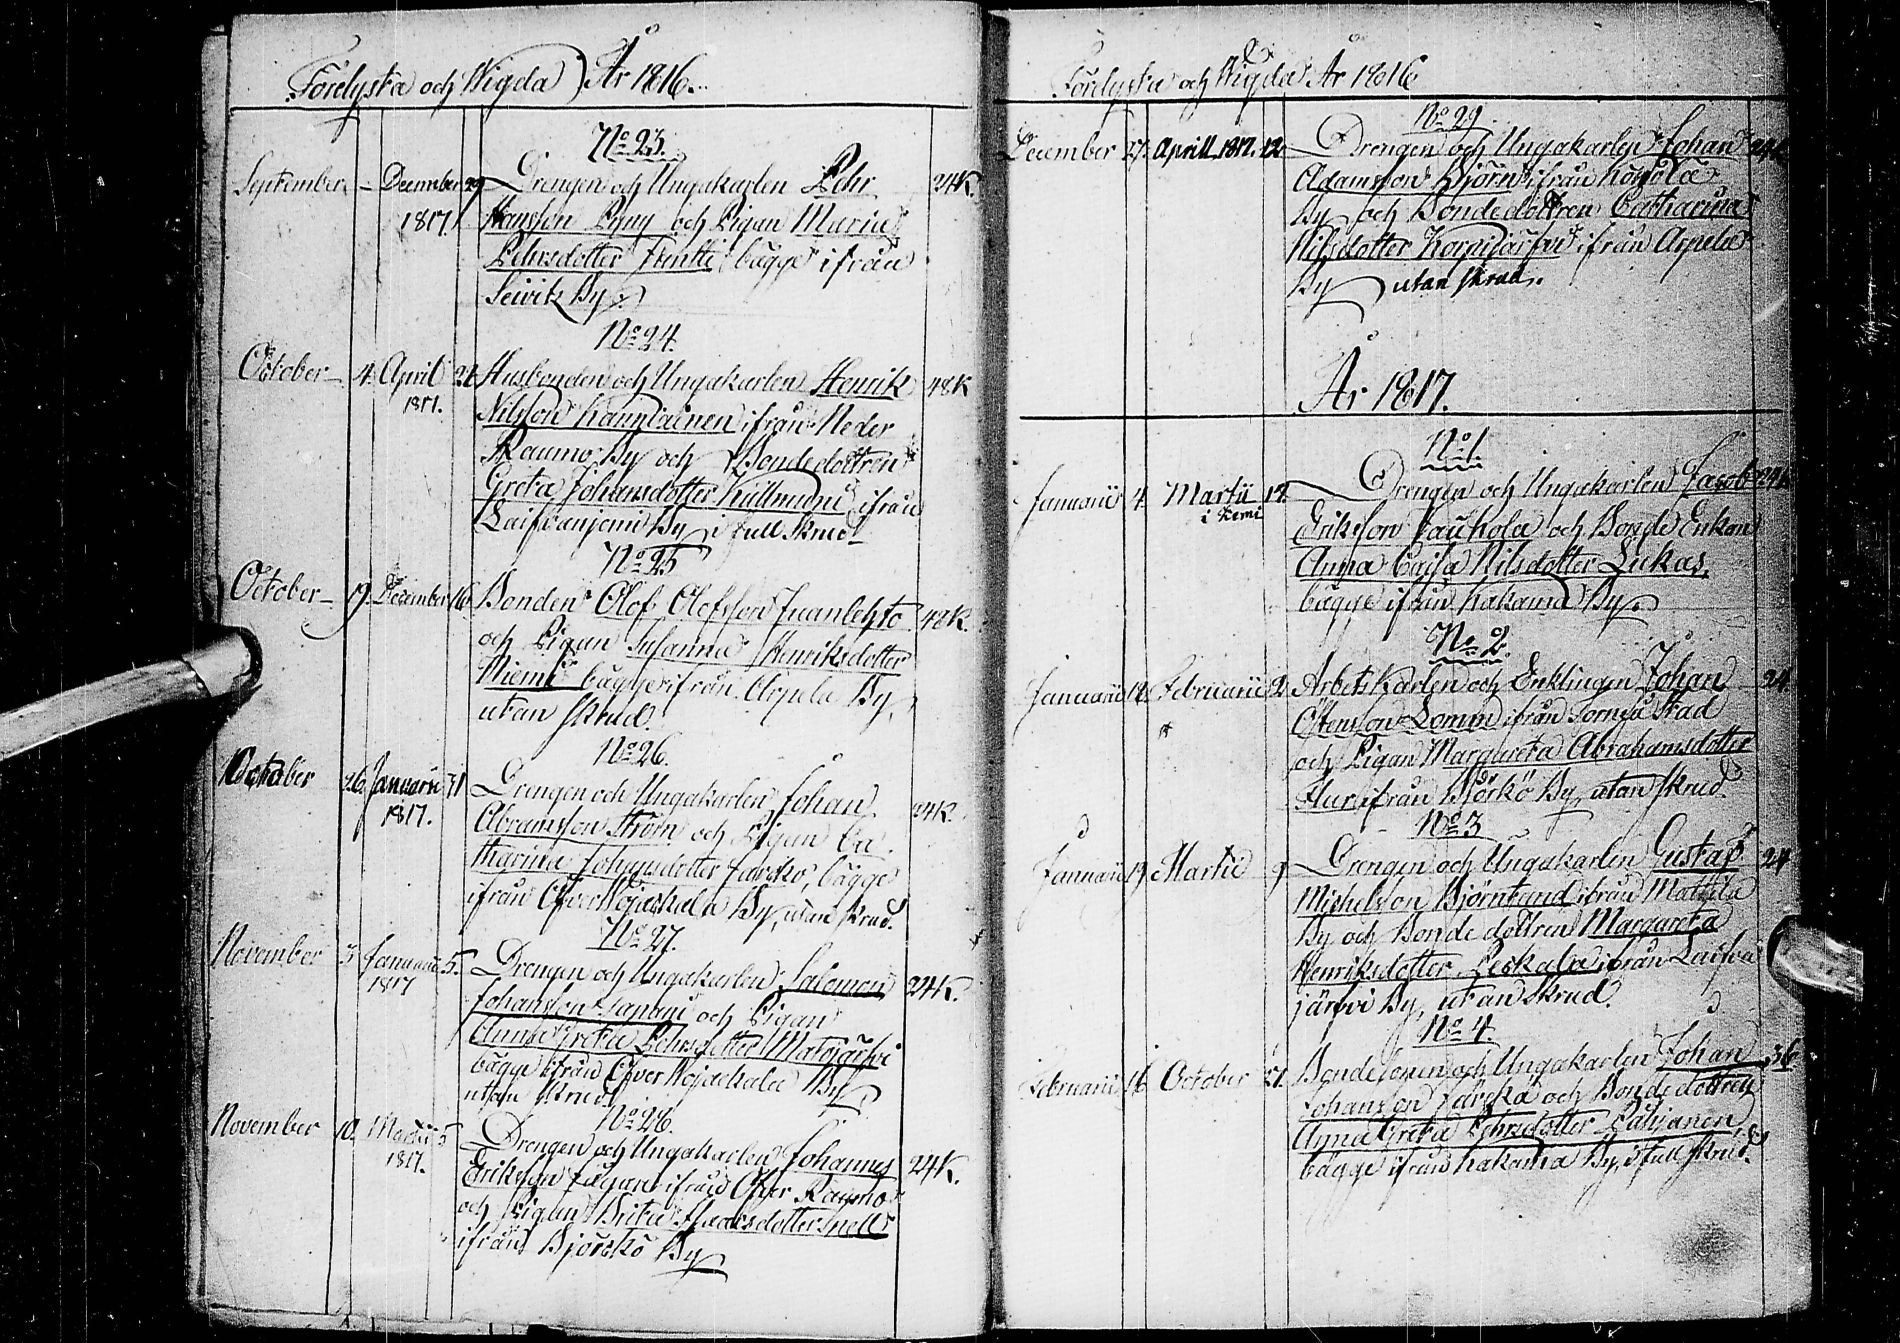 Förelysta och Wigda År 1816.
No 23.
September – December 29 Drengen och Ungakarlen Pehr 24K.
1817. Hansson Ryny och Pigan Maria
Pehrsdotter Frentti bägge ifrån
Seivitz By.
No 24.
October 4. April 21 Husbonden och Ungakarlen Henrik 48K
1817. Nilsson Kannvainen ifrån Neder
Raumo By och Bondedottren
Greta Johansdotter Kullmuni ifrån
Laifvaniemi By i full skrud
No 25
October 19. December 16 Bonden Olof Olofsson Juanlehto 48K.
och Pigan Susanna Henriksdotter
Niemi bägge ifrån Arpela By,
utan skrud.
No 26.
October 26. Januarii 31 Drengen och Ungakarlen Johan 24K.
1817. Abramsson Ström och Pigan Ca
tharina Johansdotter Jarsko, bägge
ifrån Öfver Wojackala By, utan skrud.
No 27.
November 3 Januarii 5. Drengen och Ungakarlen Salomon 24K.
1817 Johansson Lapani och Pigan
Anna Greta Pehrsdotter Matojärfvi
bägge ifrån Öfver Wojackala By
utan skrud
No 28.
November 10. Martii 5 Drengen och Ungakarlen Johannes 24K.
1817. Eriksson ifrån Öfver Raumo
och Pigan Brita Isacsdotter Snell
ifrån Björckö By
Förelysta och Wigda År 1816
No 29
December 27. Aprill 1817. 12 Drengen och Ungakarlen Johan 24K
Adamsson Björn ifrån Korpola
By och Bondedottren Catharina
Nilsdotter Karpijärfvi ifrån Arpela
By utan skrud.
År 1817.
No 1.
Januarii 4. Martii 17. Drengen och Ungakarlen Jacob 24K
i Kemi Eriksson Kauhola och Bonde Enkan
Anna Caisa Nilsdotter Lukas,
bägge ifrån Kakama By.
No 2.
Januarii 12. Februarii 2 Arbets Karlen och Enklingen Johan 24
Östensson Lomm ifrån Torneå Stad
och Pigan Margareta Abrahamsdotter
Huru ifrån Björkö By, utan skrud.
No 3
Januarii 19 Martii 9 Drengen och Ungakarlen Gustaf 24
Michelsson Björnlund ifrån Mattila
By och Bonde dottren Margareta
Henriksdotter Leskala ifrån Laifva
järfvi By, utan skrud.
No 4.
Februarii 16 October 21. Bondesonen och Ungakarlen Johan 36
Johansson Jarcka och Bondedottren
Anna Greta Pehrsdotter Pahjanen,
bägge ifrån Kakama By, i full skrud.